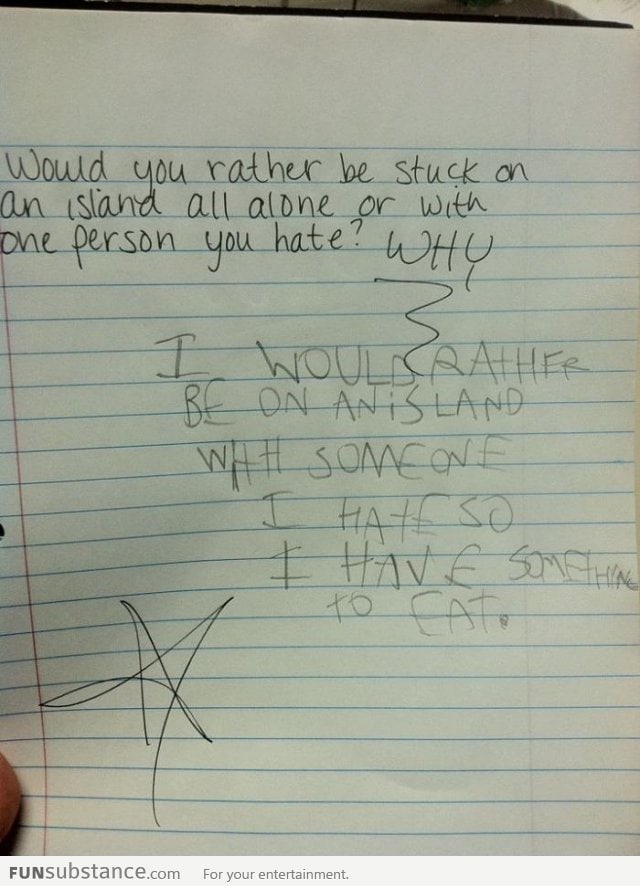 Would you rather be stuck on
an island all alone or with
one person you hate? WHY
I WOULD RATHER
BE ON AN iSLAND
WItH SOMEONE
I HAtE SO
I HAVE SOMETHING
tO EAT.
FUNsubstance.com For your entertainment.